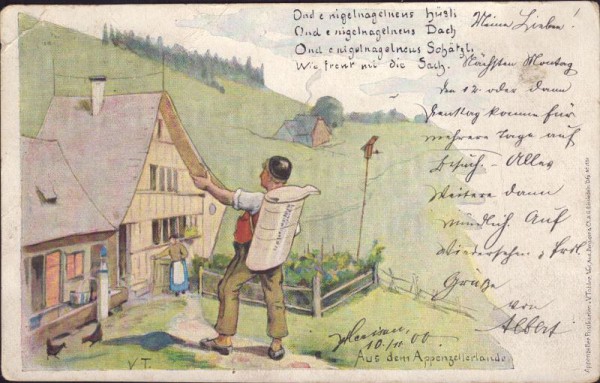 Ond e nigelnagelneus Hüsli
Ond e nigelnagelneus Dach
Ond e nigelnagelneus Schätzli,
Wie freut mi die Sach.
Meine Lieben!
Nächsten Montag
den 12. oder dann
Dienstag komme für
mehrere Tage auf
Besuch. - Alles
Weitere dann
mündlich. Auf
Wiedersehen &
Grüße
von
Albert
10./11 00.
Aus dem Appenzellerlande.
V T.